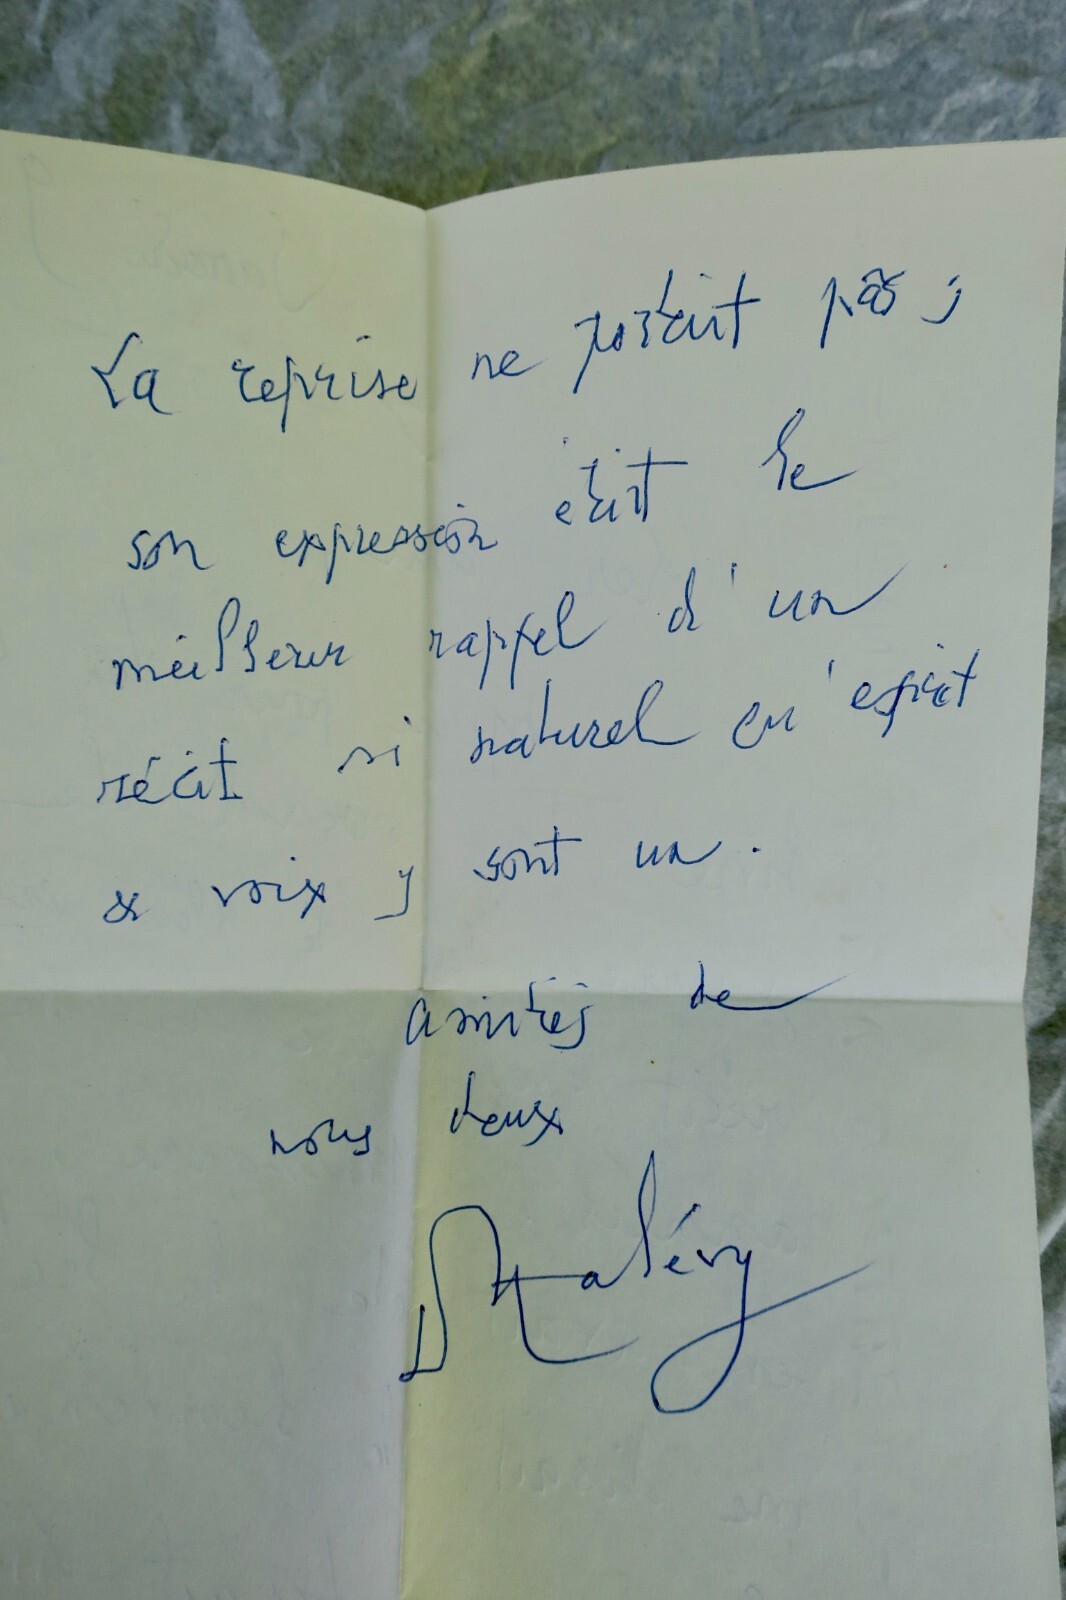 La reprise ne portait pas ;
son expression était le
meilleur rappel d'un
récit si naturel qu'esprit
& voix y sont un.
amitiés de
nous deux
Halévy